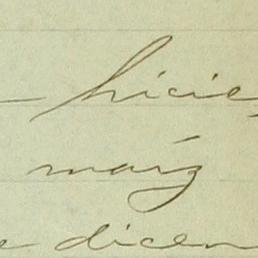 hicie
maíz
e dicen